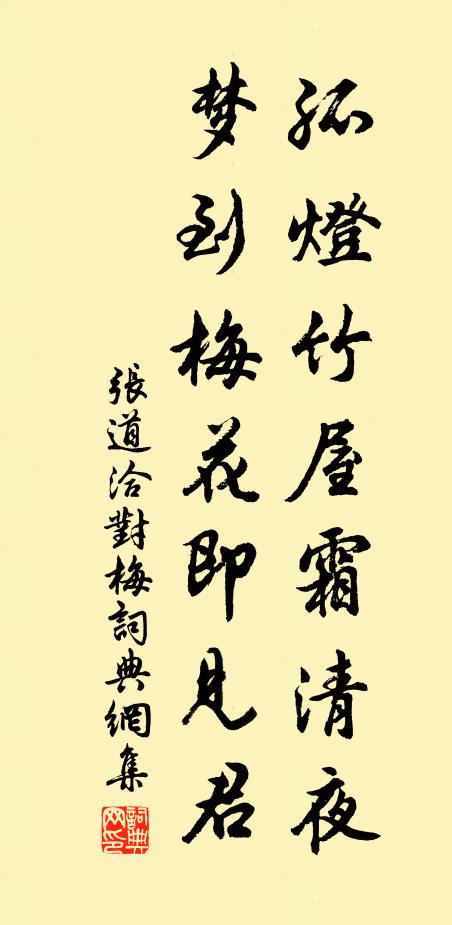 孤燈竹屋霜清夜
梦到梅花即見君
張道洽對梅詞典網集
詞典网印